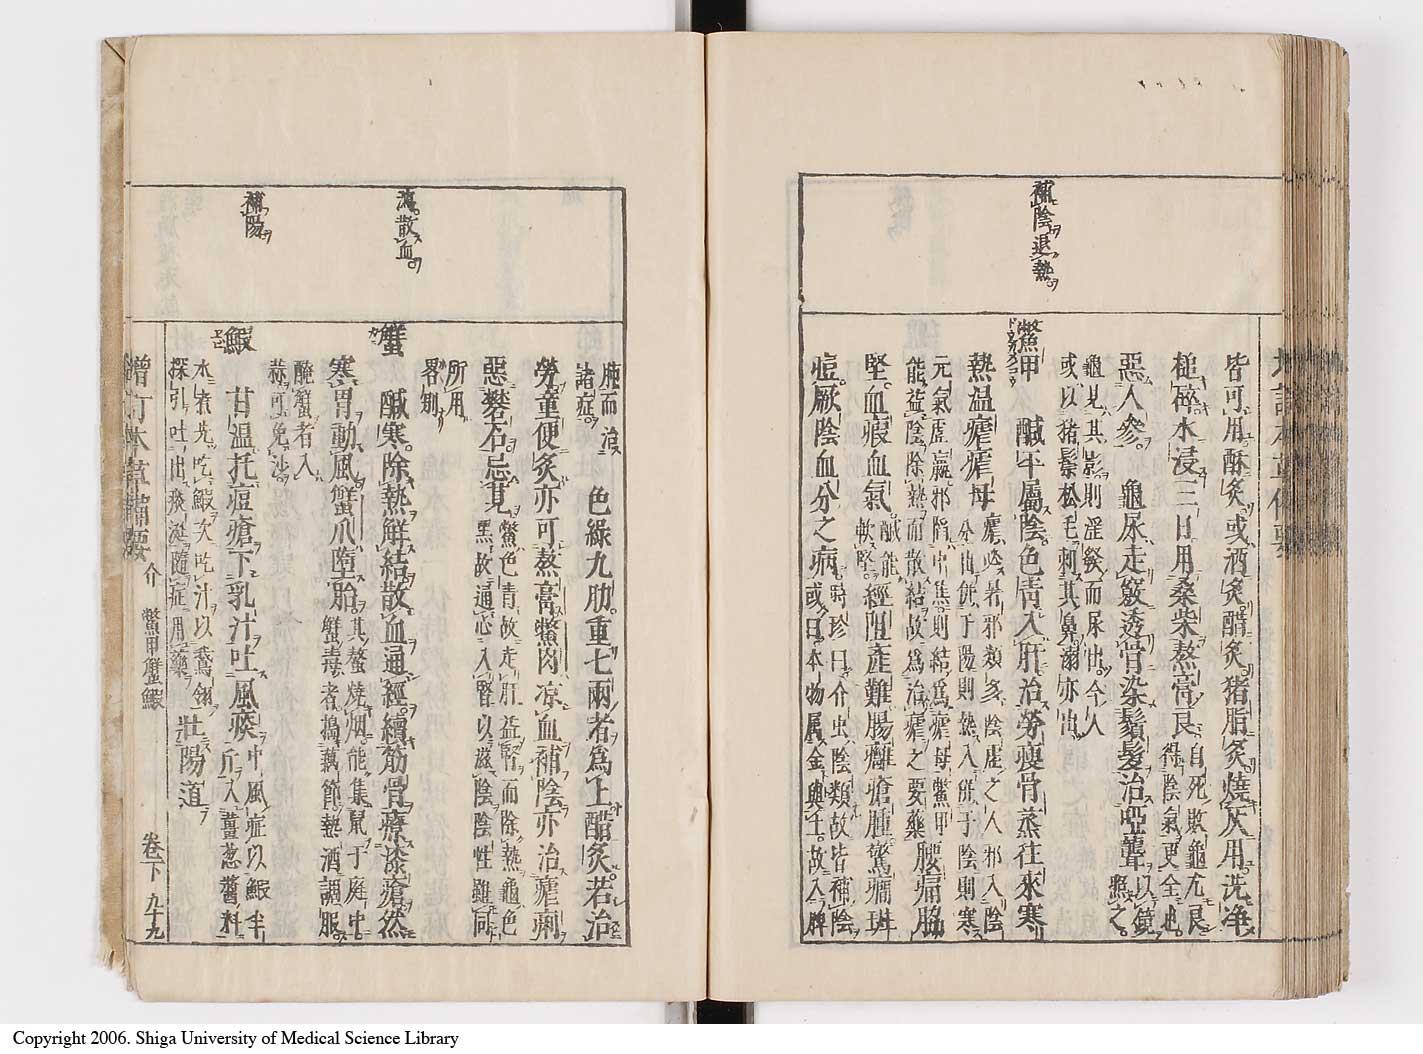 補陰退熱
皆可用酥炙或酒炙醋炙猪脂炙燒灰用洗净
槌碎水浸三日用桑柴熬膏良
自死敗龜尤良
得陰氣更全也
惡人參
龜尿走竅透骨染鬚髮治啞聾
以鏡照之
龜見其影則淫發而尿出今人
或以猪鬃松毛刺其鼻溺亦出
鱉甲
鹹平屬陰色青入肝治勞瘦骨蒸往來寒
熱溫瘧瘧母
瘧必暑邪類多陰虛之人邪入陰
分出併于陽則熱入併于陰則寒
元氣虛羸邪陷中焦則結爲瘧母鱉甲
能益陰除熱而散結故爲治瘧之要藥
腰痛脇
堅血瘕血氣
鹹能軟堅
經阻產難腸癰瘡腫驚癇斑
痘厥陰血分之病
時珍曰介虫陰類故皆補陰
或曰本物属金與土故入脾
肺而治
諸症
色綠九肋重七兩者爲上醋炙若治
勞童便炙亦可熬膏鱉肉凉血補陰亦治瘧痢
惡礬石忌莧
鱉色青故走肝益腎而除熱龜色
黑故通心入腎以滋陰陰性雖同
所用
畧別
瀉散血
蟹
鹹寒除熱解結散血通經續筋骨療漆瘡然
寒胃動風蟹爪墮胎
其螯燒烟能集鼠于庭中
蟹毒者搗藕節熱酒調服
醃蟹者入
蒜可免沙
補陽
鰕
甘溫托痘瘡下乳汁吐風痰
中風症以鰕半
斤入薑葱醬料
水煑先吃鰕次吃汁以鵞翎
探引吐出痰涎隨症用藥
壯陽道
增訂本草備要
介
鱉甲蟹鰕
卷下
九十九
Copyright 2006. Shiga University of Medical Science Library